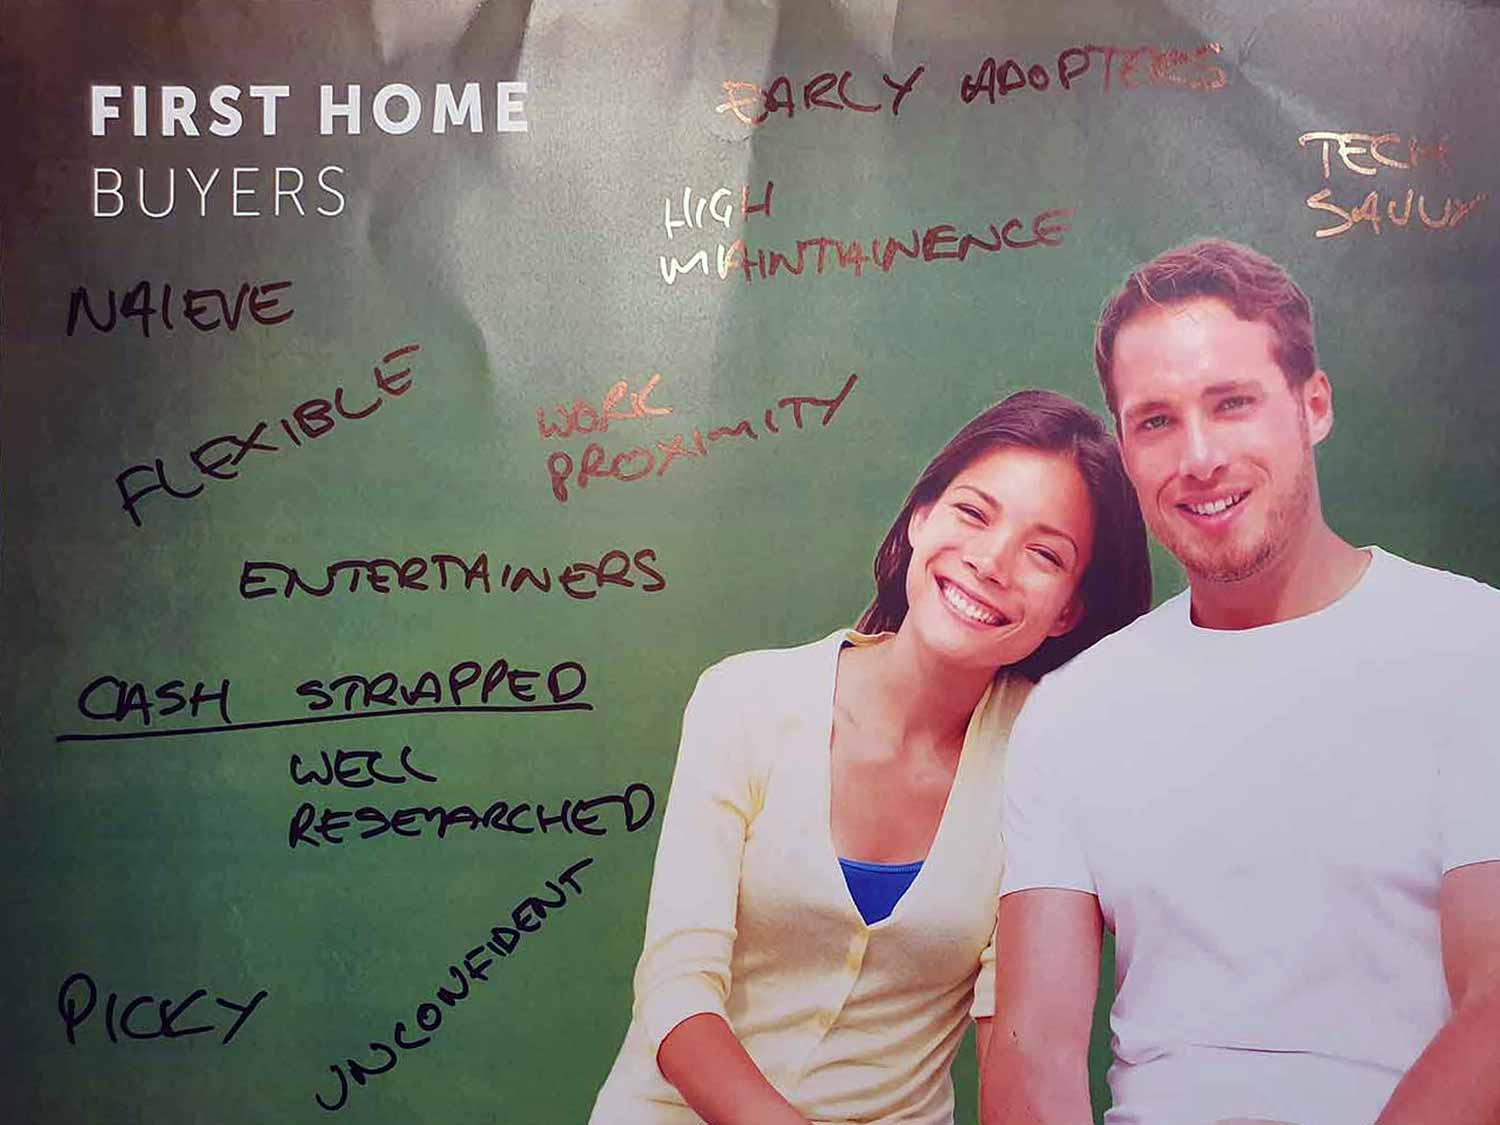 FIRST HOME
BUYERS
EARLY ADOPTERS
TECH
SAVVY
HIGH
MAINTAINENCE
NAIEVE
FLEXIBLE
WORK
PROXIMITY
ENTERTAINERS
CASH STRAPPED
WELL
RESEARCHED
UNCONFIDENT
PICKY